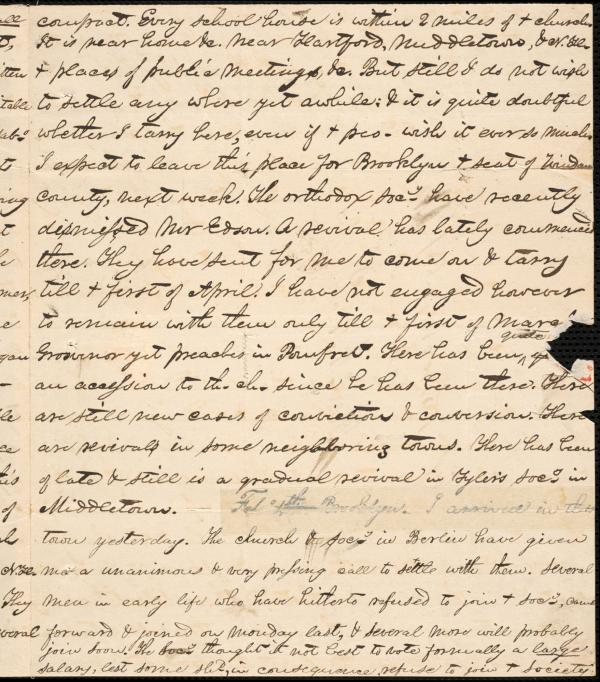 compact. Every school house is within 2 miles of + church
It is near home &c. near Hartford, Middletown, & N. H.
+ places of public meetings, &c. But still I do not wish
to settle any where yet awhile: & it is quite doubtful
whether I tarry here, even if + peo- wish it ever so much.
I expect to leave this place for Brooklyn + seat of Windam
county, next week. The orthodox soc.y have recently
dismissed Mr Edson. A revival has lately commenced
there. They have sent for me to come on & tarry
till + first of April. I have not engaged however
to remain with them only till + first of
Grosvenor yet preaches in Pomfret. There has been quite
an accession to th. ch. since he has been there. There
are still new cases of conviction & conversion. There
are revivals in some neighboring towns. There has been
of late & still is a gradual revival in Tyler's soc.y in
Middletown. Feb Brooklyn. I arrived in
town yesterday. The church & soc.y in Berlin have given
me a unanimous & very pressing call to settle with them. Several
men in early life who have hitherto refused to join + soc.y, came
forward & joined on monday last, & several more will probably
join soon. The soc.y thought it not best to vote formally a large
salary, lest some sh.d, in consequence refuse to join + society.